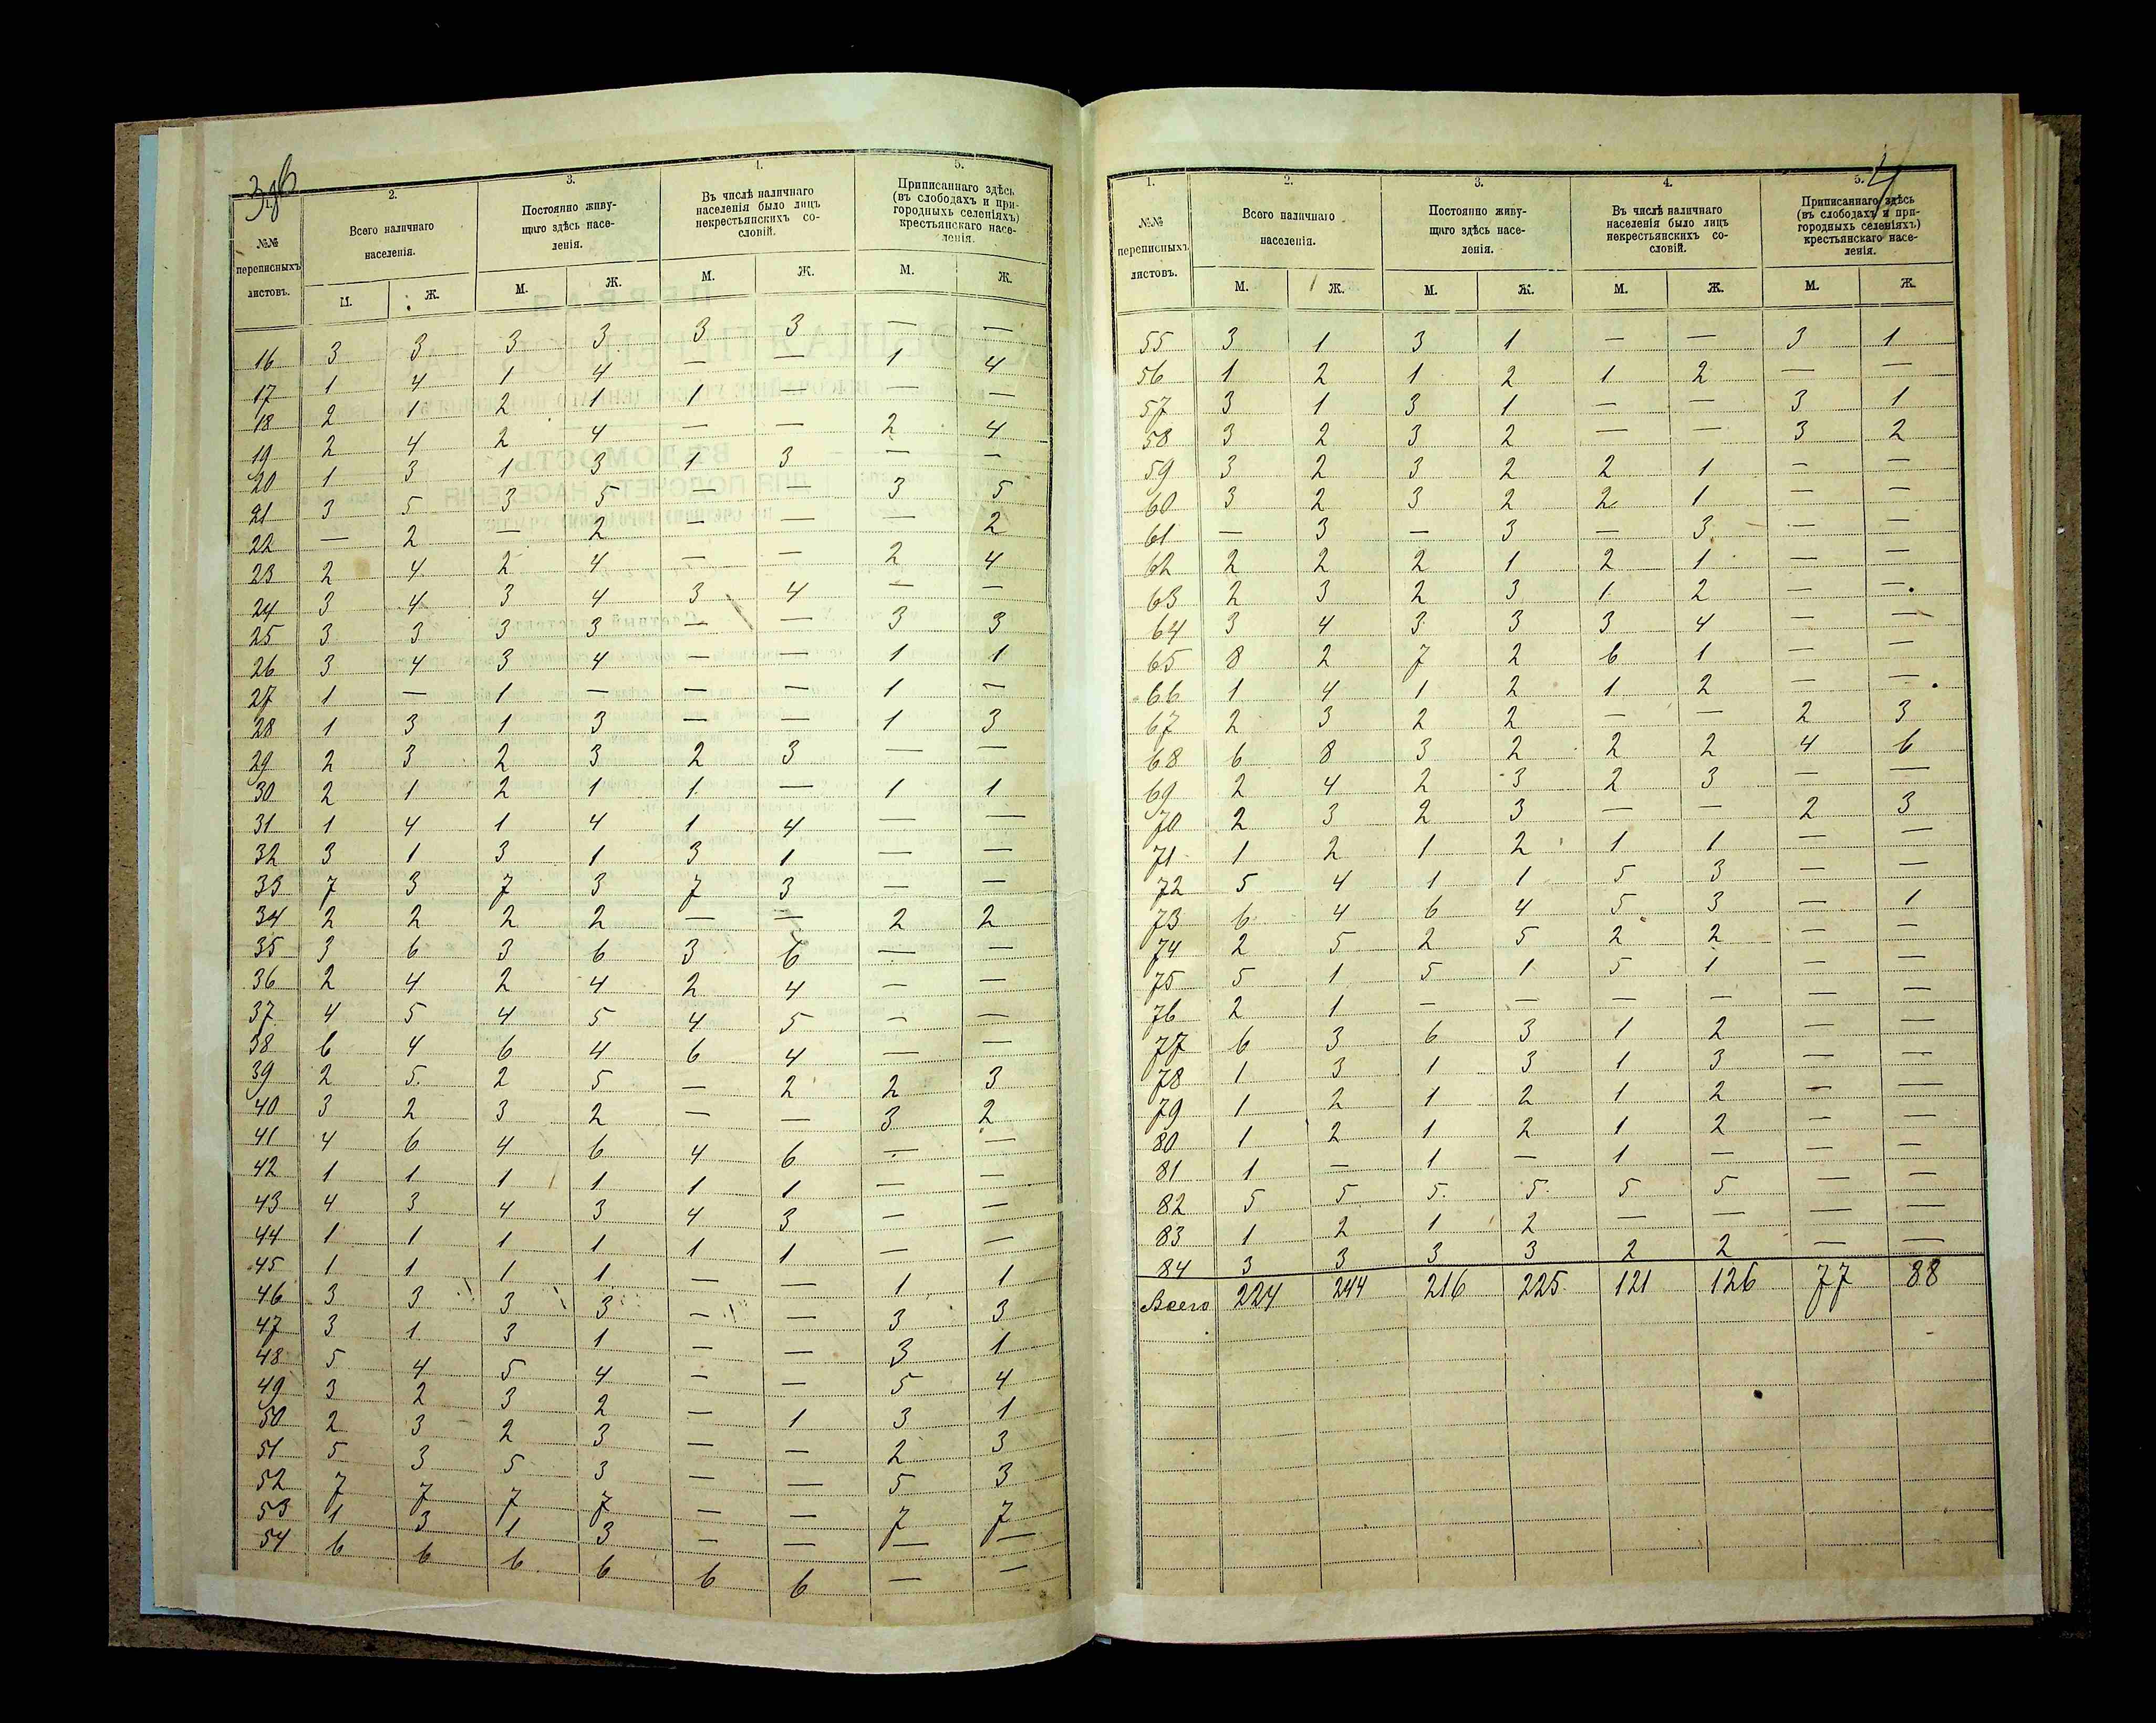 398
2.
3.
4.
5.
№№ переписныхъ листовъ.
Всего наличнаго населенія.
Постоянно живущаго здѣсь населенія.
Въ числѣ наличнаго населенія было лицъ некрестьянскихъ сословій.
Приписаннаго здѣсь (въ слободахъ и пригородныхъ селеніяхъ) крестьянскаго населенія.
М. Ж. М. Ж. М. Ж. М. Ж.
16 3 3 3 3 3 3 — —
17 1 4 1 4 — — 1 4
18 2 1 2 1 1 — — —
19 2 4 2 4 — — 2 4
20 1 3 1 3 1 3 — —
21 3 5 3 5 — — 3 5
22 — 2 — 2 — — — 2
23 2 4 2 4 — — 2 4
24 3 4 3 4 3 4 — —
25 3 3 3 3 — — 3 3
26 3 4 3 4 — — 1 1
27 1 — 1 — — — 1 —
28 1 3 1 3 — — 1 3
29 2 3 2 3 2 3 — —
30 2 1 2 1 1 — 1 1
31 1 4 1 4 1 4 — —
32 3 1 3 1 3 1 — —
33 7 3 7 3 7 3 — —
34 2 2 2 2 — — 2 2
35 3 6 3 6 3 6 — —
36 2 4 2 4 2 4 — —
37 4 5 4 5 4 5 — —
38 6 4 6 4 6 4 — —
39 2 5 2 5 — 2 2 3
40 3 2 3 2 — — 3 2
41 4 6 4 6 4 6 — —
42 1 1 1 1 1 1 — —
43 4 3 4 3 4 3 — —
44 1 1 1 1 1 1 — —
45 1 1 1 1 — — 1 1
46 3 3 3 3 — — 3 3
47 3 1 3 1 — — 3 1
48 5 4 5 4 — — 5 4
49 3 2 3 2 — 1 3 1
50 2 3 2 3 — — 2 3
51 5 3 5 3 — — 5 3
52 7 7 7 7 — — 7 7
53 1 3 1 3 — — — —
54 6 6 6 6 6 6 — —
4
1.
2.
3.
4.
5.
№№ переписныхъ листовъ.
Всего наличнаго населенія.
Постоянно живущаго здѣсь населенія.
Въ числѣ наличнаго населенія было лицъ некрестьянскихъ сословій.
Приписаннаго здѣсь (въ слободахъ и пригородныхъ селеніяхъ) крестьянскаго населенія.
М. Ж. М. Ж. М. Ж. М. Ж.
55 3 1 3 1 — — 3 1
56 1 2 1 2 1 2 — —
57 3 1 3 1 — — 3 1
58 3 2 3 2 — — 3 2
59 3 2 3 2 2 1 — —
60 3 2 3 2 2 1 — —
61 — 3 — 3 — 3 — —
62 2 2 2 1 2 1 — —
63 2 3 2 3 1 2 — —
64 3 4 3 3 3 4 — —
65 8 2 7 2 6 1 — —
66 1 4 1 2 1 2 — —
67 2 3 2 2 — — 2 3
68 6 8 3 2 2 2 4 6
69 2 4 2 3 2 3 — —
70 2 3 2 3 — — 2 3
71 1 2 1 2 1 1 — —
72 5 4 1 1 5 3 — —
73 6 4 6 4 5 3 — 1
74 2 5 2 5 2 2 — —
75 5 1 5 1 5 1 — —
76 2 1 — — — — — —
77 6 3 6 3 1 2 — —
78 1 3 1 3 1 3 — —
79 1 2 1 2 1 2 — —
80 1 2 1 2 1 2 — —
81 1 — 1 — 1 — — —
82 5 5 5 5 5 5 — —
83 1 2 1 2 — — — —
84 3 3 3 3 2 2 — —
Всего 224 244 216 225 121 126 77 88